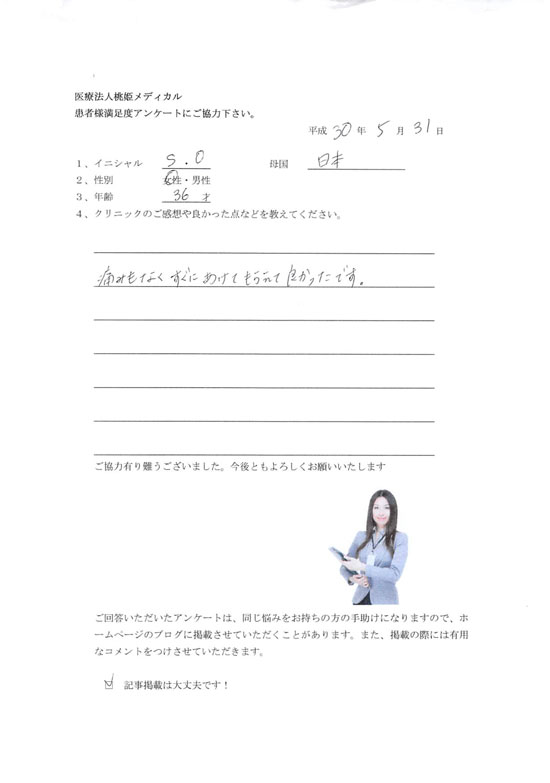 医療法人桃姫メディカル
患者様満足度アンケートにご協力下さい。
平成 30 年 5 月 31 日
1、イニシャル S.O 母国 日本
2、性別 女性・男性
3、年齢 36 才
4、クリニックのご感想や良かった点などを教えてください。
痛みもなく すぐに あけて もらえて 良かったです。
ご協力有り難うございました。今後ともよろしくお願いいたします
ご回答いただいたアンケートは、同じ悩みをお持ちの方の手助けになりますので、ホ
ームページのブログに掲載させていただくことがあります。また、掲載の際には有用
なコメントをつけさせていただきます。
☑ 記事掲載は大丈夫です！